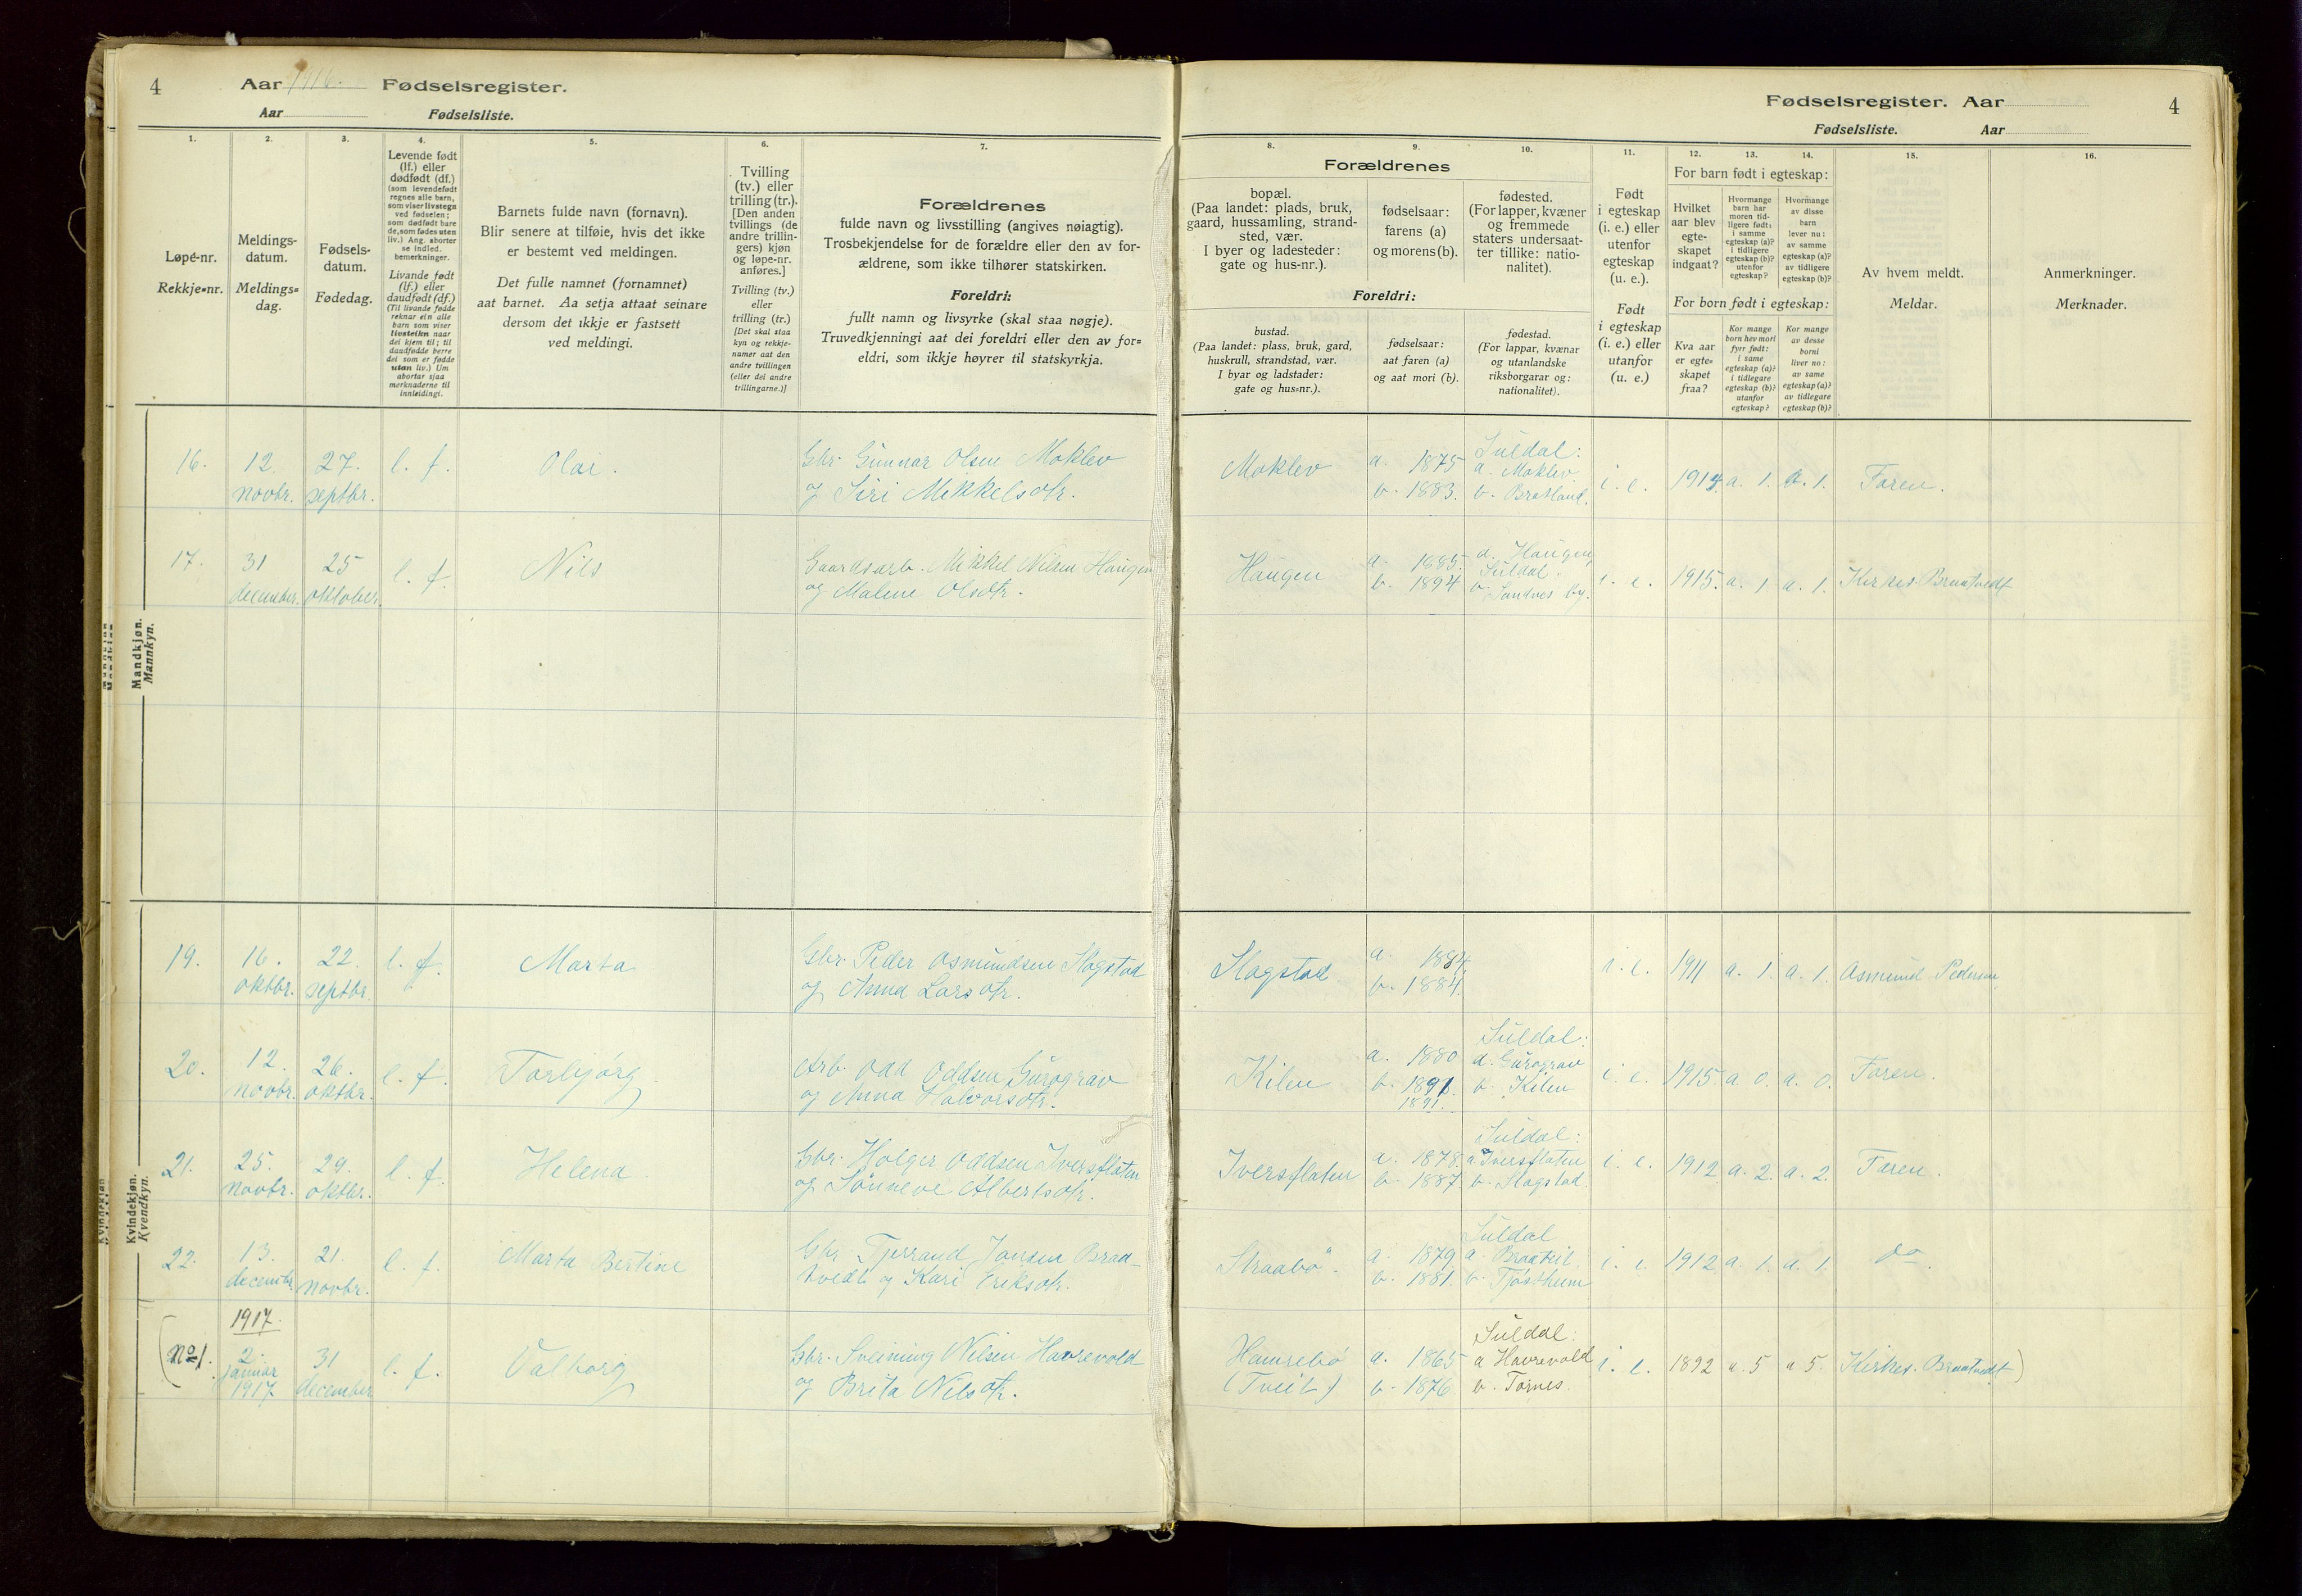 4
Aar 1916. Fødselsregister.
Aar Fødselsliste.
Fødselsregister. Aar
4
Fødselsliste. Aar
1.
Løpe-nr.
Rekkje=nr.
2.
Meldings-
datum.
Meldings=
dag.
3.
Fødsels-
datum.
Fødedag.
4.
Levende født
(lf.) eller
dødfødt (df.)
(som levendefødt
regnes alle barn,
som viser livstegn
ved fødselen;
som dødfødt bare
de, som fødes uten
liv.) Ang. aborter
se indled.
bemerkninger.
Livande født
(lf.) eller
daudfødt (df.)
(Til livande fødde
reknar ein alle
barn som viser
livsteikn naar
dei kjem til; til
daudfødde berre
dei som er fødde
utan liv.) Um
abortar sjaa
merknaderne til
innleidingi.
5.
Barnets fulde navn (fornavn).
Blir senere at tilføie, hvis det ikke
er bestemt ved meldingen.
Det fulle namnet (fornamnet)
aat barnet. Aa setja attaat seinare
dersom det ikkje er fastsett
ved meldingi.
6.
Tvilling
(tv.) eller
trilling (tr.).
[Den anden
tvillings (de
andre trillin-
gers) kjøn
og løpe-nr.
anføres.]
Tvilling (tv.)
eller
trilling (tr.)
[Det skal staa
kyn og rekkje-
numer aat den
andre tvillingen
(eller dei andre
trillingarne.)]
7.
Forældrenes
fulde navn og livsstilling (angives nøiagtig).
Trosbekjendelse for de forældre eller den av for-
ældrene, som ikke tilhører statskirken.
Foreldri:
fullt namn og livsyrke (skal staa nøgje).
Truvedkjenningi aat dei foreldri eller den av for=
eldri, som ikkje høyrer til statskyrkja.
8.
Forældrenes
bopæl.
(Paa landet: plads, bruk,
gaard, hussamling, strand-
sted, vær.
I byer og ladesteder:
gate og hus-nr.).
Foreldri:
bustad.
(Paa landet: plass, bruk, gard,
huskrull, strandstad, vær.
I byar og ladstader:
gate og hus=nr.).
9.
fødselsaar:
farens (a)
og morens (b).
fødselsaar:
aat faren (a)
og aat mori (b).
10.
fødested.
(For lapper, kvæner
og fremmede
staters undersaat-
ter tillike: natio-
nalitet).
fødestad.
(For lappar, kvænar
og utanlandske
riksborgarar og:
nationalitet).
11.
Født
i egteskap
(i. e.) eller
utenfor
egteskap
(u. e.).
Født
i egteskap
(i. e.) eller
utanfor
(u. e.)
12. 13. 14.
For barn født i egteskap:
Hvilket
aar blev
egte-
skapet
indgaat?
Hvormange
barn har
moren tid-
ligere født:
i samme
egteskap (a)?
i tidligere
egteskap (b)?
utenfor
egteskap?
Hvormange
av disse
barn
lever nu:
av samme
egteskap (a)?
av tidligere
egteskap (b)?
For born født i egteskap:
Kva aar
er egte=
skapet
fraa?
Kor mange
born hev mori
fyrr født:
i same
egteskap (a)?
i tidlegare
egteskap (b)?
utanfor
egteskap?
Kor mange
av desse
borni
liver no:
av same
egteskap (a)?
av tidlegare
egteskap (b)?
15.
Av hvem meldt.
Meldar.
16.
Anmerkninger.
Merknader.
Mandkjøn.
Mannkyn.
16. 12. novbr. 27. septbr. l. f. Olai. Gbr. Gunnar Olsen Moklev
og Siri Mikkelsdtr.
Moklev a. 1875 b. 1883. Suldal: a. Moklev. b. Bratland. i. e. 1914. a. 1. a. 1. Faren.
17. 31 december. 25 oktober. l. f. Nils Gaardsarb. Mikkel Nilsen Haugen
og Malene Olsdtr.
Haugen a. 1885. b. 1894 a. Haugen, Suldal. b. Sandnes by. i. e. 1915. a. 1. a. 1. Kirkes. Braatvedt
Kvindekjøn.
Kvendkyn.
19. 16. oktbr. 22. septbr. l. f. Marta Gbr. Peder Osmundsen Slagstad
og Anna Larsdtr.
Slagstad a. 1884 b. 1884. i. e. 1911 a. 1. a. 1. Asmund Pedersen
20. 12. novbr. 26. oktbr. l. f. Torbjørg Arb. Odd Oddsen Gurograv
og Anna Halvorsdtr.
Kilen a. 1880 b. 1891. 1891. Suldal: a. Gurograv b. Kilen i. e. 1915. a. 0. a. 0. Faren.
21. 25. novbr. 29. oktbr. l. f. Helena. Gbr. Holger Oddsen Iversflaten
og Sønneve Albertsdtr.
Iversflaten a. 1878. b. 1887. Suldal: a. Iversflaten b. Slagstad. i. e. 1912 a. 2. a. 2. Faren.
22. 13. decembr. 21. novbr. l. f. Marta Bertine Gbr. Tjerrand Jansen Braa-
tvedt og Kari Eriksdtr.
Straabø. a. 1879. b. 1881. Suldal a. Braatveit. b. Tjøstheim i. e. 1912 a. 1. a. 1. do.
1917.
(No 1. 2. januar 1917 31 december l. f. Valborg Gbr. Sveinung Nilsen Havrevold
og Brita Nilsdtr.
Hamrebø (Tveit) a. 1865 b. 1876 Suldal: a Havrevold b. Tornes. i. e. 1892 a. 5 a 5. Kirkes. Braatvedt)